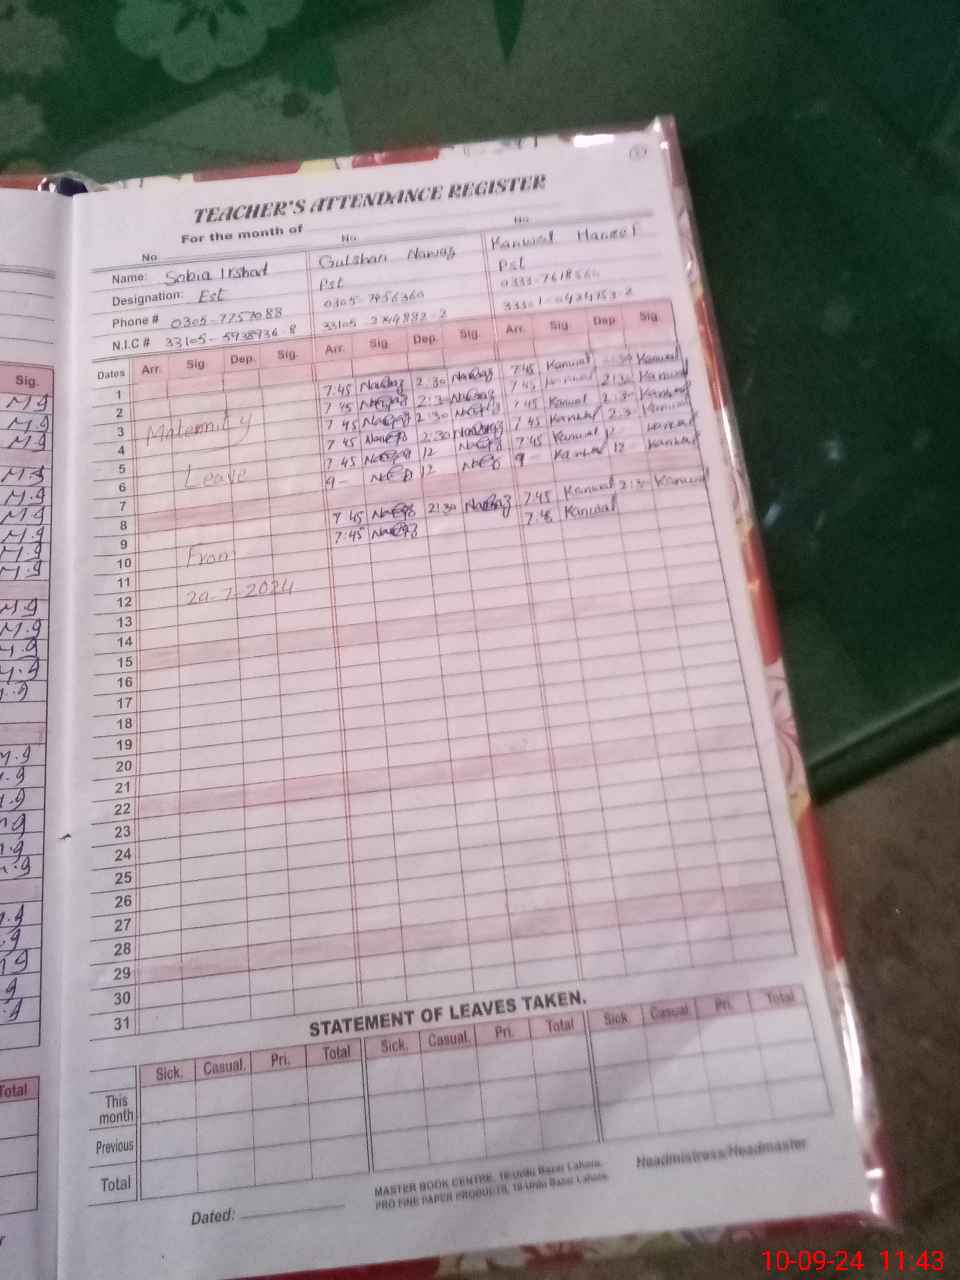 TEACHER'S ATTENDANCE REGISTER
For the month of
No No No
Name: Sobia Irshad Gulshan Nawaz Kanwal Haneef
Designation: Est Pst Pst
Phone # 0305-7757088 0305-7456360
N.I.C # 33105-5938736-8
Dates Arr. Sig Dep. Sig. Arr. Sig. Dep. Sig. Arr. Sig. Dep Sig.
1 7:45 Nawaz 2:30 Nawaz 7:45 Kanwal 2:30 Kanwal
2 7:45 Nawaz 2:30 Nawaz 7:45 Kanwal 2:30 Kanwal
3 Maternity 7:45 Nawaz 2:30 Nawaz 7:45 Kanwal 2:30 Kanwal
4 7:45 Nawaz 2:30 Nawaz 7:45 Kanwal 2:30 Kanwal
5 Leave 7:45 Nawaz 12 Nawaz 7:45 Kanwal 12 Kanwal
6 9- Nawaz 12 Nawaz 9- Kanwal 12- Kanwal
7
8 7:45 Nawaz 2:30 Nawaz 7:45 Kanwal 2:30 Kanwal
9 From 7:45 Nawaz 7:45 Kanwal
10
11 -7-2024
12
13
14
15
16
17
18
19
20
21
22
23
24
25
26
27
28
29
30
31
STATEMENT OF LEAVES TAKEN.
Sick. Casual. Pri. Total Sick. Casual. Pri. Total Sick Casual Pri. Total
This month
Previous
Total
Dated:
MASTER BOOK CENTRE, 18-Urdu Bazar Lahore.
PRO FINE PAPER PRODUCTS, 18-Urdu Bazar Lahore.
Headmistress/Headmaster
Sig.
M.g
M.g
M.g
M.g
M.g
M.g
M.g
M.g
M.g
M.g
M.g
M.g
M.g
Total
10-09-24 11:43